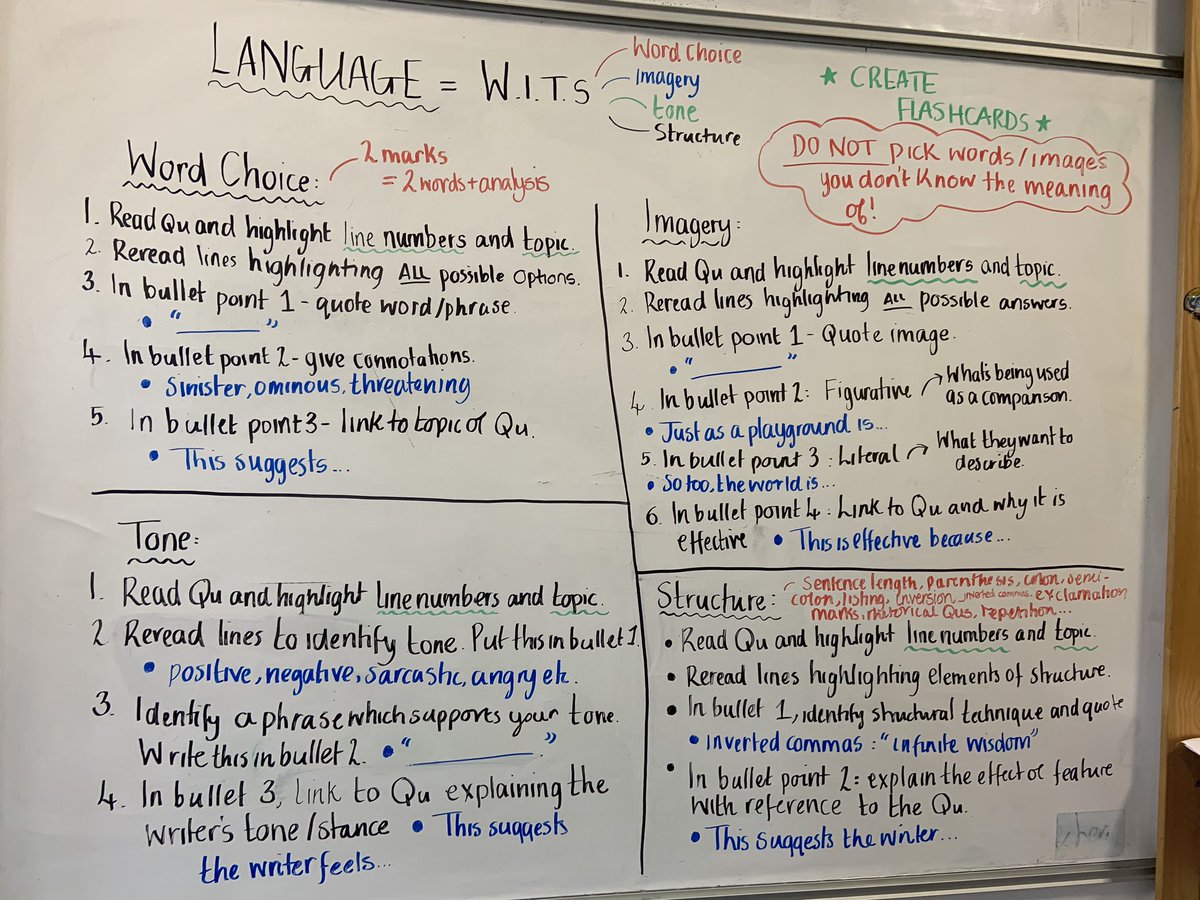 LANGUAGE = W.I.T.S
Word Choice
Imagery
tone
Structure
★ CREATE
FLASHCARDS ★
DO NOT pick words/images
you don't know the meaning
of!
Word Choice:
2 marks
= 2 words + analysis
1. Read Qu and highlight line numbers and topic.
2. Reread lines highlighting ALL possible options.
3. In bullet point 1 - quote word/phrase.
• " "
4. In bullet point 2 - give connotations.
• Sinister, ominous, threatening
5. In bullet point 3 - link to topic of Qu.
• This suggests...
Imagery:
1. Read Qu and highlight line numbers and topic.
2. Reread lines highlighting ALL possible answers.
3. In bullet point 1 - Quote image.
• " "
4. In bullet point 2: Figurative → What's being used
as a comparison.
• Just as a playground is...
5. In bullet point 3: Literal → What they want to
describe.
• So too, the world is...
6. In bullet point 4: Link to Qu and why it is
effective • This is effective because...
Tone:
1. Read Qu and highlight line numbers and topic.
2 Reread lines to identify tone. Put this in bullet 1.
• positive, negative, sarcastic, angry etc.
3. Identify a phrase which supports your tone.
Write this in bullet 2. • " "
4. In bullet 3, link to Qu explaining the
writer's tone/stance • This suggests
the writer feels...
Structure: - Sentence length, parenthesis, colon, semi-
colon, listing, inversion, inverted commas, exclamation
marks, rhetorical Qus, repetition...
• Read Qu and highlight line numbers and topic.
• Reread lines highlighting elements of structure.
• In bullet 1, identify structural technique and quote
• Inverted commas: "infinite wisdom"
• In bullet point 2: explain the effect of feature
with reference to the Qu.
• This suggests the writer...